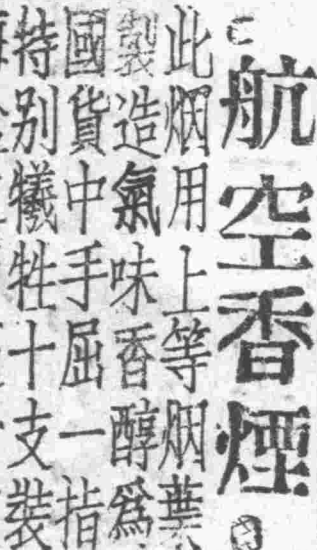 航空香煙
此烟用上等烟葉
製造氣味香醇爲
國貨中手屈一指
特别犧牲十支裝